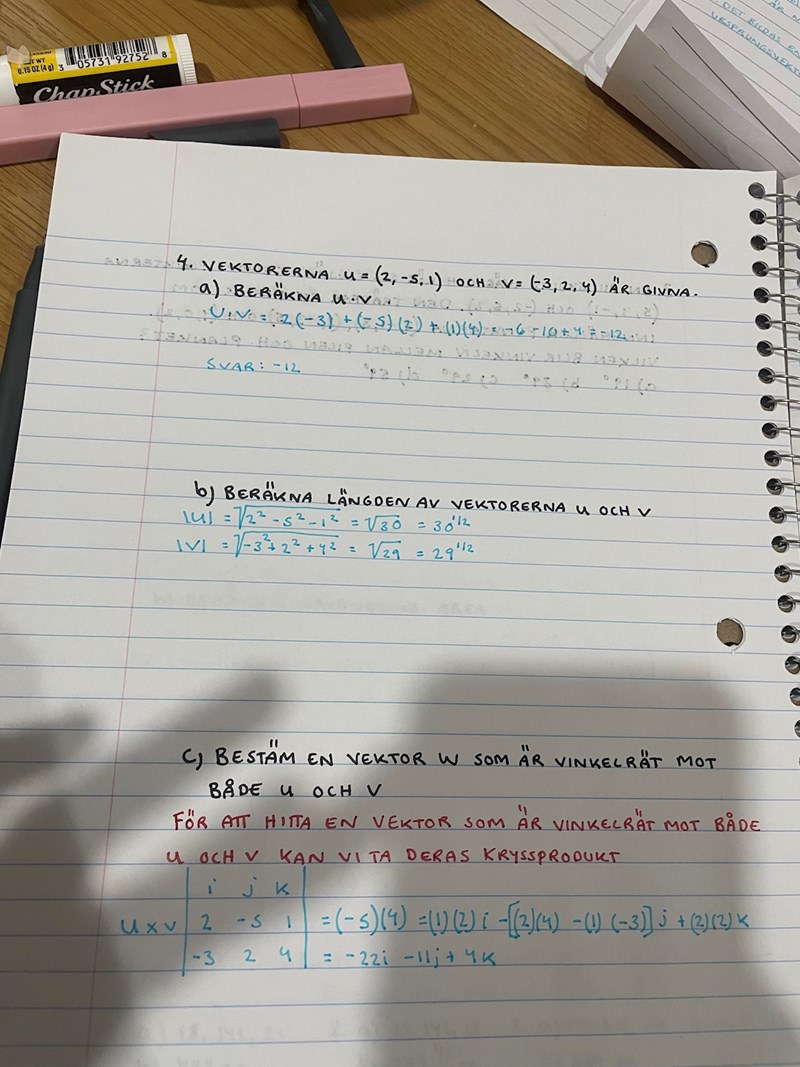 0.15 OZ (4g) 3 05731 92752 8
ChapStick
DET
VEKTORERNA U = (2, -5, 1) OCH V = (-3, 2, 4) ÄR GIVNA.
4. VEKTORERNA U = (2, -5, 1) OCH V = (-3, 2, 4) ÄR GIVNA.
a) BERÄKNA U·V.
U·V = 2(-3) + (-5)(2) + (1)(4) = -6 - 10 + 4 = -12
SVAR: -12
b) BERÄKNA LÄNGDEN AV VEKTORERNA U OCH V
|U| = √2² - 5² - 1² = √30 = 30^1/2
|V| = √-3² + 2² + 4² = √29 = 29^1/2
C) BESTÄM EN VEKTOR W SOM ÄR VINKELRÄT MOT
BÅDE U OCH V
FÖR ATT HITTA EN VEKTOR SOM ÄR VINKELRÄT MOT BÅDE
U OCH V KAN VI TA DERAS KRYSSPRODUKT
i j k
U x V 2 -5 1 = (-5)(4) = (1)(2) i - [(2)(4) - (1)(-3)] j + (2)(2) k
-3 2 4 = -22i - 11j + 4k